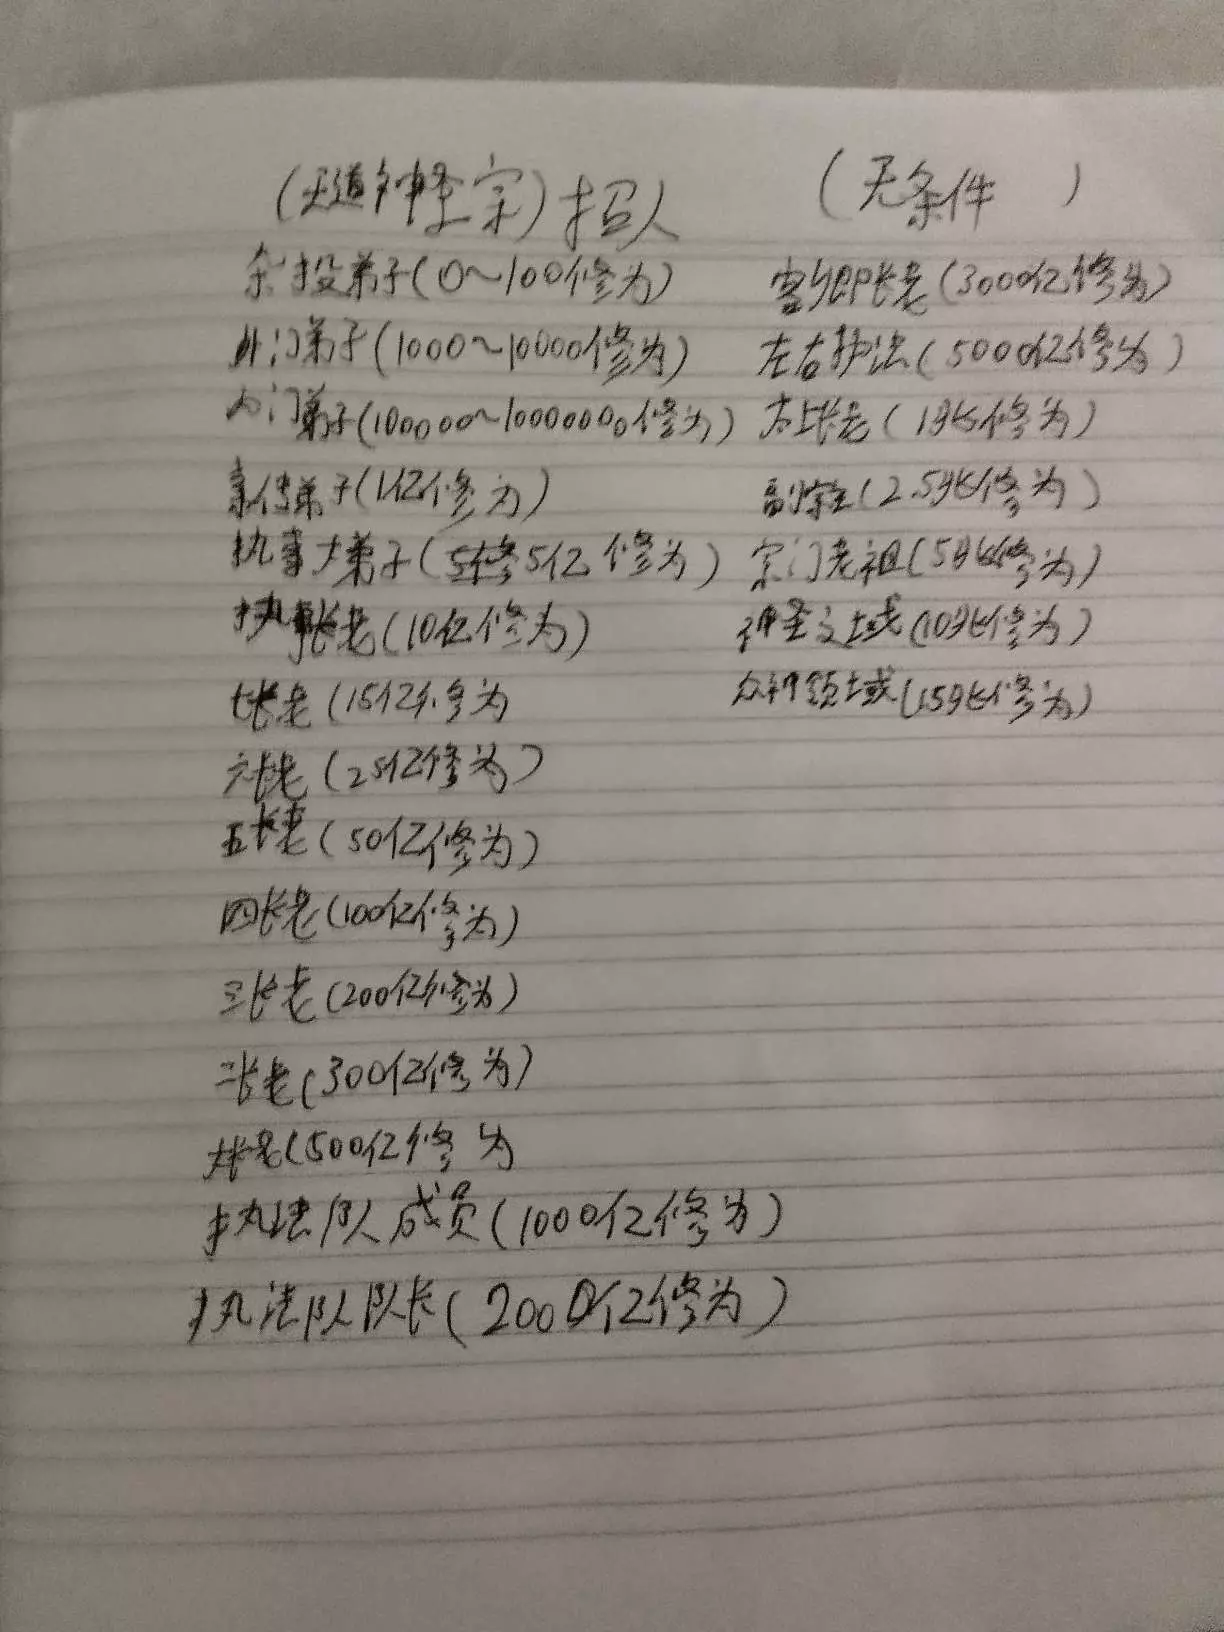 (天道神圣宗)招人
(无条件)
杂役弟子(0~100修为)
外门弟子(1000~10000修为)
内门弟子(100000~10000000修为)
亲传弟子(1亿修为)
执事大弟子(5修5亿修为)
执事长老(10亿修为)
七长老(15亿修为
六长老(25亿修为)
五长老(50亿修为)
四长老(100亿修为)
三长老(200亿修为)
二长老(300亿修为)
大长老(500亿修为
执法队成员(1000亿修为)
执法队队长(2000亿修为)
长老(3000亿修为)
左右护法(5000亿修为)
太上长老(1兆修为)
副宗主(2.5兆修为)
宗门老祖(5兆修为)
神圣之域(10兆修为)
众神领域(15兆修为)